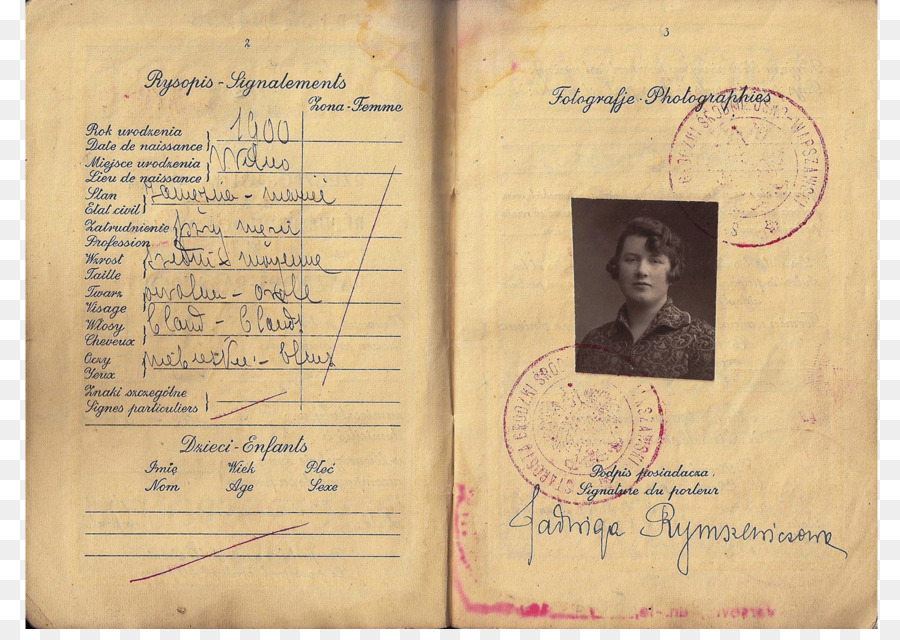 2
Rysopis - Signalements
Żona-Femme
Rok urodzenia
Date de naissance
1900
Miejsce urodzenia
Lieu de naissance
Wilno
Stan
Etat civil
Zatrudnienie
Profession
przy mężu
Wzrost
Taille
Twarz
Visage
owalna - ovale
Włosy
Cheveux
bland - bland
Oczy
Yeux
Znaki szczególne
Signes particuliers
Dzieci-Enfants
Imię Wiek Płeć
Nom Age Sexe
3
Fotografje-Photographies
Podpis posiadacza.
Signature du porteur
Jadwiga Rymszewiczowa